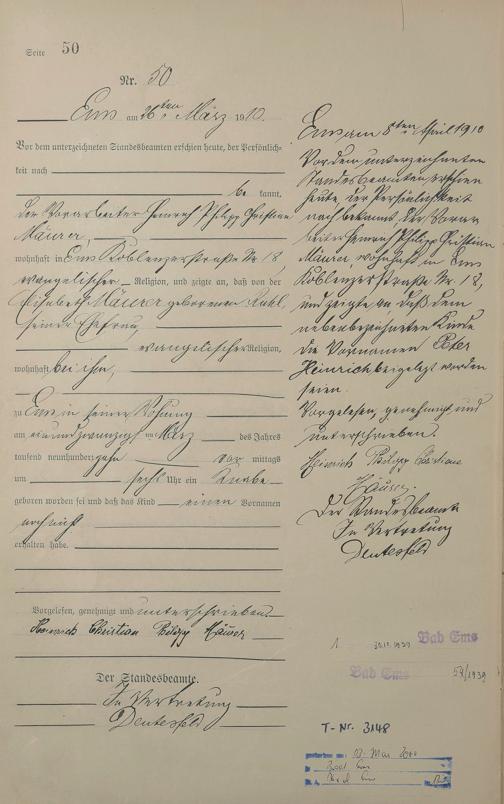 Seite 50
Nr. 50
Ems am 26ten März 1910.
Vor dem unterzeichneten Standesbeamten erschien heute, der Persönlich-
keit nach
be kannt,
der Vorarbeiter Heinrich Philipp Christian
Mäurer,
wohnhaft in Ems Koblenzerstraße Nr. 18,
evangelischer Religion, und zeigte an, daß von der
Elisabeth Mäurer geborenen
seiner Ehefrau,
evangelischer Religion,
wohnhaft bei ihm,
zu Ems in seiner Wohnung
am einundzwanzigsten März des Jahres
tausend neunhundert zehn vor mittags
um sechs Uhr ein Knabe
geboren worden sei und daß das Kind einen Vornamen
noch nicht
erhalten habe.
Vorgelesen, genehmigt und unterschrieben.
Heinrich Christian Philipp Mäurer
Der Standesbeamte.
In Vertretung
Ems am 8ten April 1910
Vor dem unterzeichneten
Standesbeamten erschien
heute, der Persönlichkeit
nach bekannt, der Vorar-
beiter Heinrich Philipp Christian
Mäurer, wohnhaft in Ems
Koblenzerstraße Nr. 18,
und zeigte an, daß dem
nebenbezeichneten Kinde
die Vornamen Peter
Heinrich beigelegt worden
seien.
Vorgelesen, genehmigt und
unterschrieben.
Heinrich Philipp Christian
Mäurer.
Der Standesbeamte
In Vertretung
1 Bad Ems
Bad Ems 1939
T-Nr. 3148